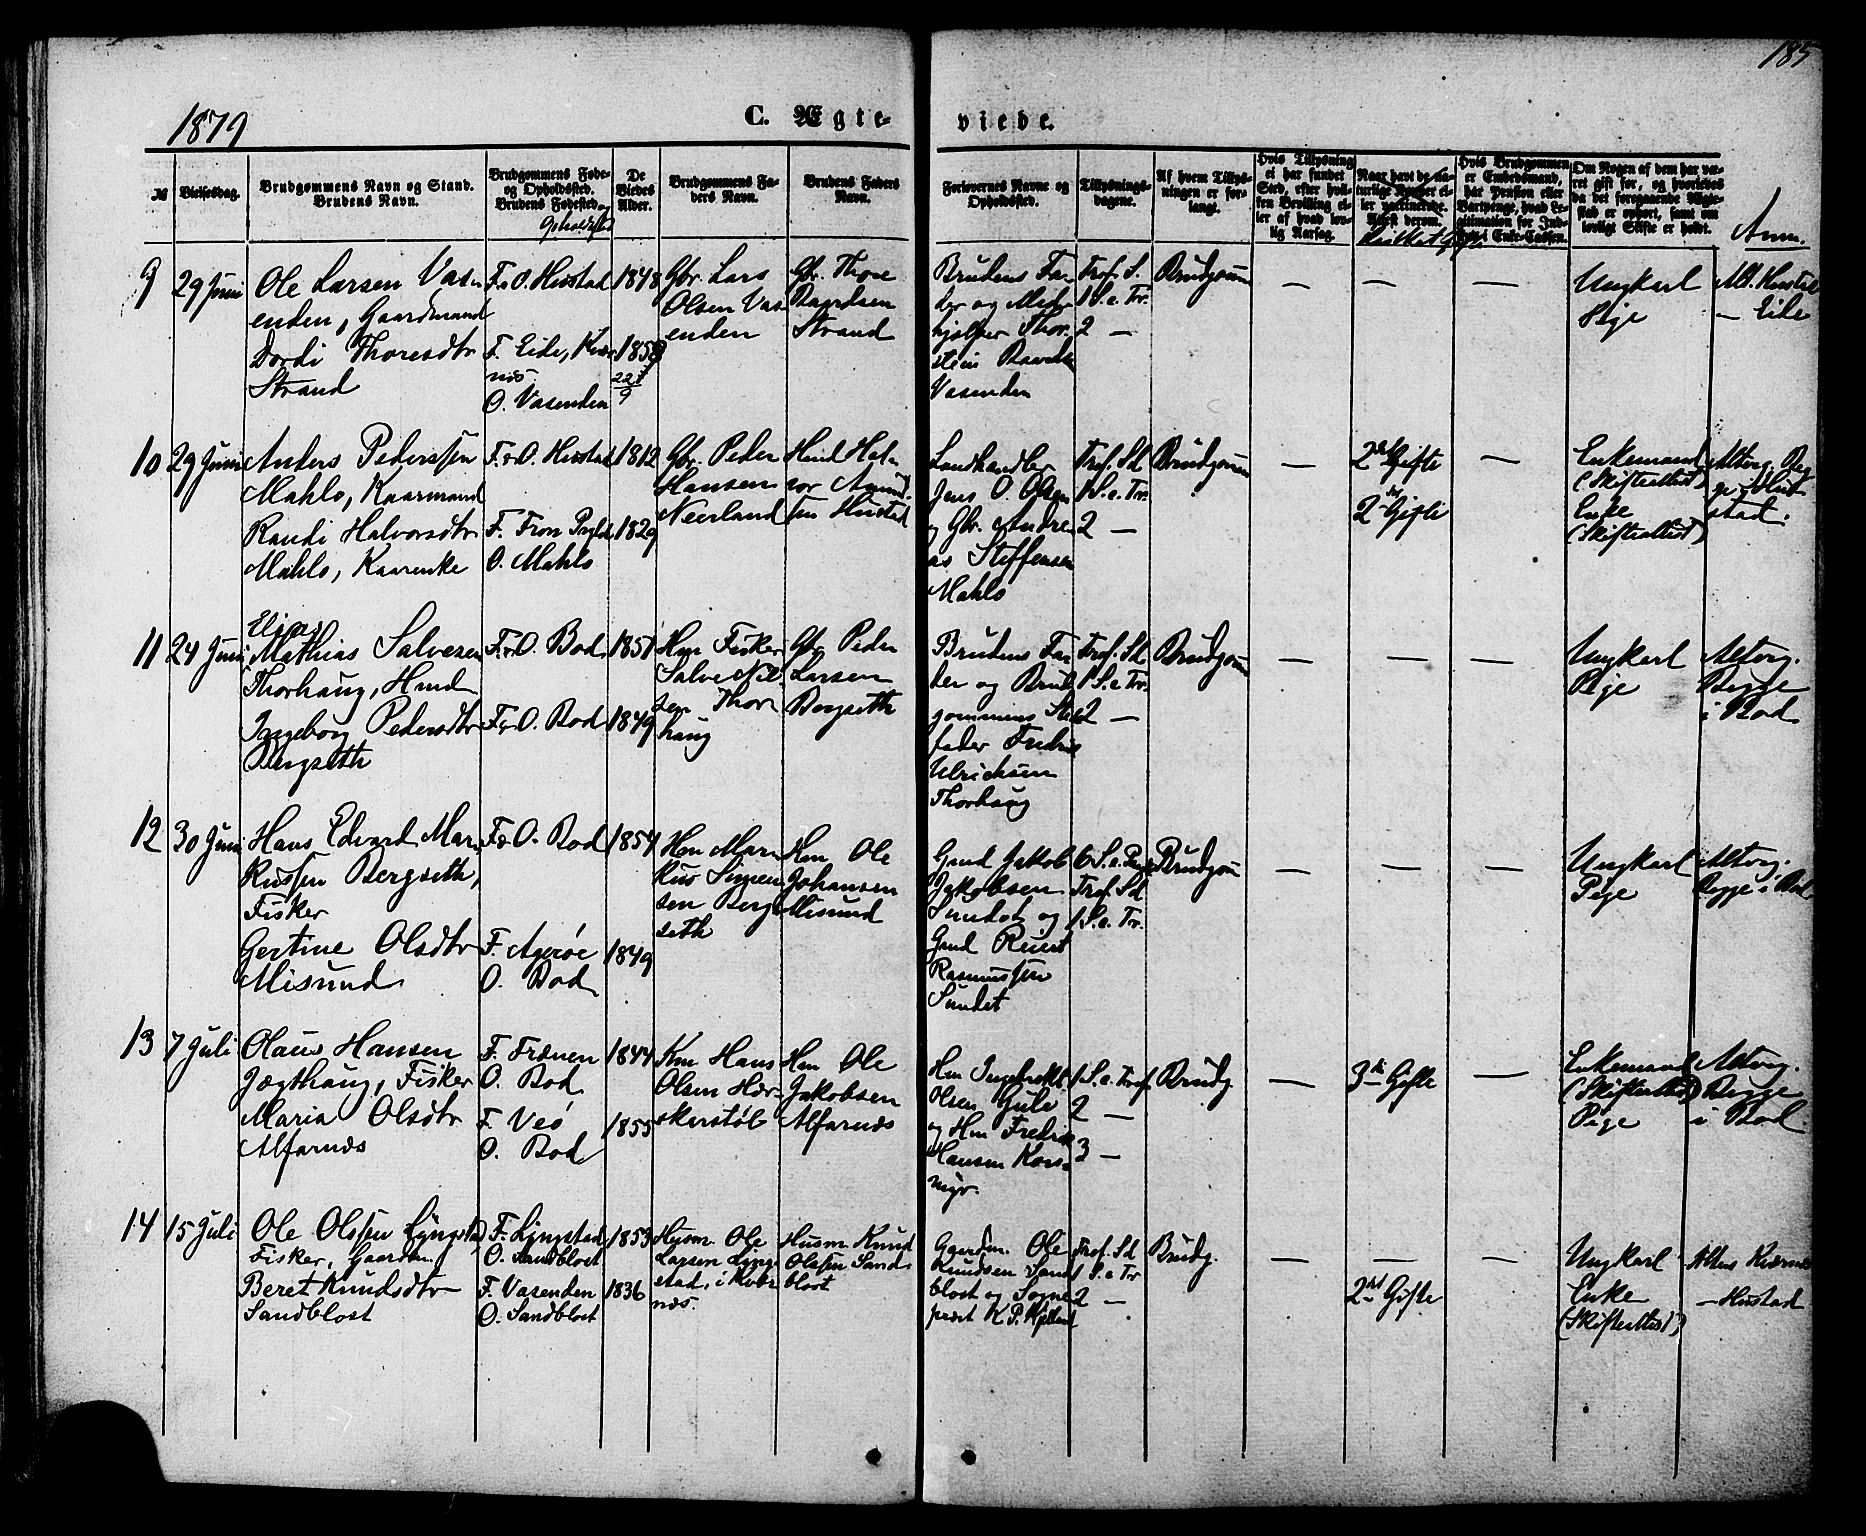 185
1879
C. Ægte-
viede.
№
Vielsesdag.
Brudgommens Navn og Stand.
Brudens Navn.
Brudgommens Føde-
og Opholdssted.
Brudens Fødested
og Opholdssted
De
Viedes
Alder.
Brudgommens Fa-
ders Navn.
Brudens Faders
Navn.
Forlovernes Navne og
Opholdssted.
Tillysnings-
dagene.
Af hvem Tillys-
ningen er for-
langt.
Hvis Tillysning
ei har fundet
Sted, efter hvil-
ken Bevilling el-
ler af hvad lov-
lig Aarsag.
Naar havt de na-
turlige Kopper el-
ler vaccinerede.
Attest derom.
Hvilket Gifte
Hvis Brudgommen
er Embedsmand,
har Pension eller
Vartpenge, hvad Le-
gitimation for Ind-
skud i Enke-Cassen.
Om Nogen af dem har væ-
ret gift før, og hvorledes
da det foregaaende Ægte-
skab er ophørt, samt om
lovligt Skifte er holdt.
Anm.
9
29 Juni
Ole Larsen Vas-
enden, Gaardmand
Dordi Thoresdtr
Strand
F. o O. Hustad
F. Eide, Kvær
nes
O. Vasenden
1848
1858
22/9
Gbr. Lars
Olsen Vas
enden
Gbr. Thore
Baardsen
Strand
Brudens Fa-
der og Med-
hjælper Thor-
stein Baards
Vasenden
Trof. S.
1 S. e. Tr.
2 —
Brudgom
—
—
—
Ungkarl
Pige
Alt. Hustad
— Eide
10
29 Juni
Anders Pederssen
Mahlo, Kaarmand
Randi Halvorsdtr
Mahlo, Kaarenke
F. o O. Hustad
F. Fron Prgld
O. Mahlo
1812
1829
Gbr. Peder
Hansen
Neerland
Hmd Hal-
vor Amund-
sen Hustad
Landhandler
Jens O. Olsen
og Gbr. Andre-
as Steffensen
Mahlo
Trof. Sd
1 S. e. Tr.
2 —
Brudgom
—
2det Gifte
2det Gifte
—
Enkemand
(Skifteattest)
Enke
(Skifteattest)
Altvrg. Beg
ge i Hust
stad.
11
24 Juni
Elias
Mathias Salvesen
Thorhaug, Hmd
Ingeborg Pedersdtr
Bergseth
F. o O. Bod
F. o O. Bod
1851
1849
Hm Fisker
Salve Nil-
sen Thor
haug
Gbr Peder
Larsen
Bergseth
Brudens Fa-
der og Brud
gommens Stif
fader Fredrik
Ulricksen
Thorhaug
Trof. Sd
1 S. e. Tr.
2 —
Brudgom
—
—
—
Ungkarl
Pige
Altvrg.
Begge
i Bod
12
30 Juni
Hans Edvard Mar-
kussen Bergseth,
Fisker
Gertine Olsdtr
Misund
F. o O. Bod
F. Agerøe
O. Bod
1854
1849
Hm Mar-
kus Simen-
sen Berg-
seth
Hm Ole
Johansen
Misund
Gmd Jakob
Jakobsen
Sundet og
Gmd Reiert
Rasmussen
Sundet
6 S. e. Paas
Trof. Sd
1 S. e. Tr.
Brudgom
—
—
—
Ungkarl
Pige
Altvrg.
Begge i Bod
13
7 Juli
Olaus Hansen
Jægthaug, Fisker
Maria Olsdtr
Alfarnæs
F. Frænen
O. Bod
F. Veø
O. Bod
1844
1855
Hm Hans
Olsen Hær-
skerstøl
Hm Ole
Jakobsen
Alfarnæs
Hm Ingebrekt
Olsen Gule
og Hm Fredrik
Hansen Kors-
myr.
1 S. e. Trof.
2 —
3 —
Brudg.
—
3die Gifte
—
Enkemand
(Skifteattest)
Pige
Altvrg.
Begge
i Bod.
14
15 Juli
Ole Olssen Lyngstad
Fisker, Gaardm.
Beret Knudsdtr
Sandblost
F. Lyngstad
O. Sandblost
F. Vasenden
O. Sandblost
1853
1836
Husm. Ole
Larsen Lyng-
stad, i Kvær-
næs.
Husm. Knud
Olssen Sand-
blost
Gaardm. Ole
Knudsen Sand
blost og Sogne
præst K. P. Kjelland
Trof. Sd
1 S. e. Tr
2 —
Brudg.
—
—
2det Gifte
—
Ungkarl
Enke
(Skifteattest)
Altvs Kværnæs
— Hustad